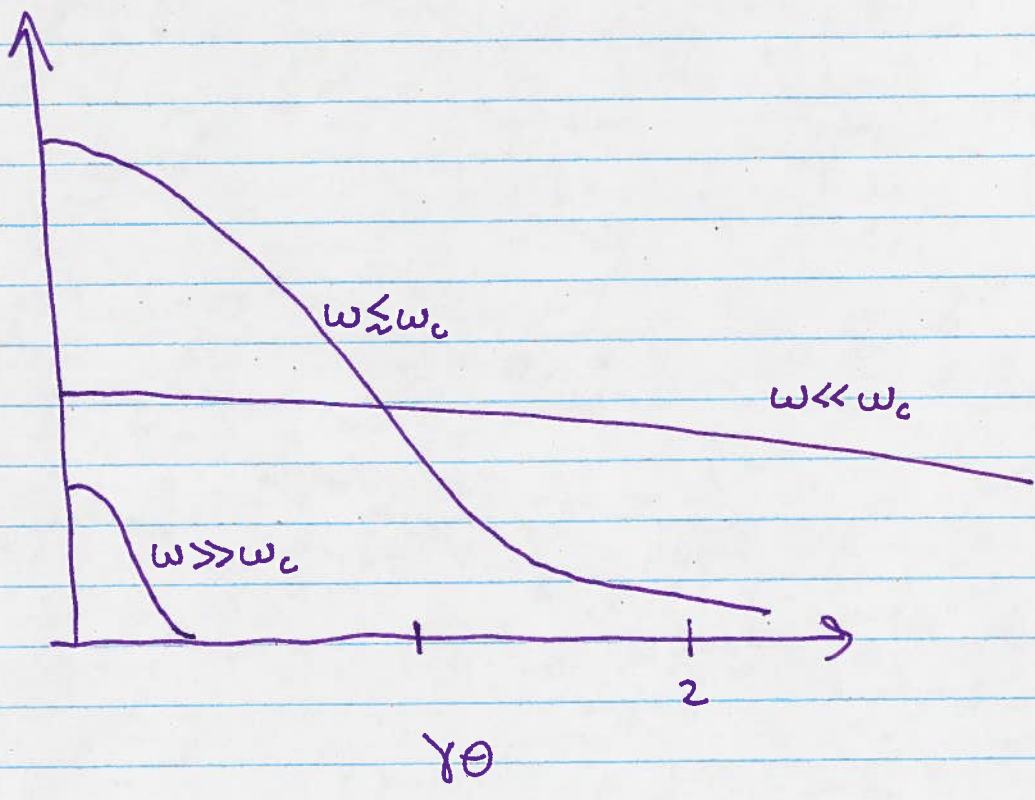 ω≲ω_c
ω≪ω_c
ω≫ω_c
2
γθ